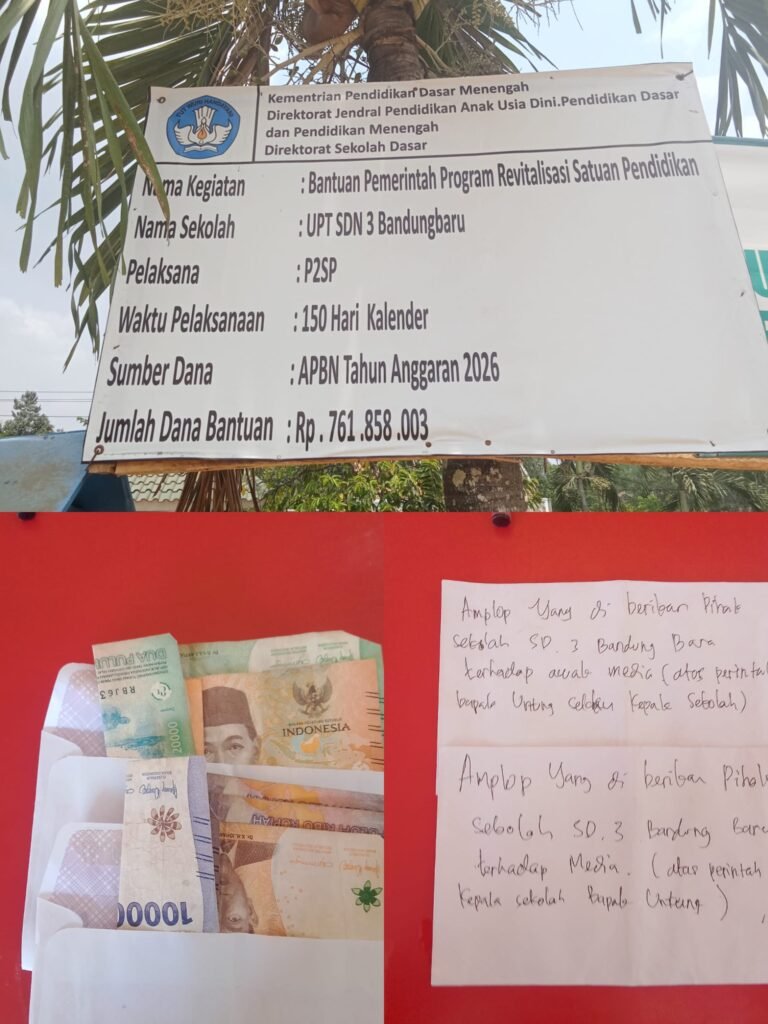 TUT WURI HANDAYANI
Kementrian Pendidikan Dasar Menengah
Direktorat Jendral Pendidikan Anak Usia Dini.Pendidikan Dasar
dan Pendidikan Menengah
Direktorat Sekolah Dasar
Nama Kegiatan : Bantuan Pemerintah Program Revitalisasi Satuan Pendidikan
Nama Sekolah : UPT SDN 3 Bandungbaru
Pelaksana : P2SP
Waktu Pelaksanaan : 150 Hari Kalender
Sumber Dana : APBN Tahun Anggaran 2026
Jumlah Dana Bantuan : Rp . 761 .858 .003
DUA PULU
RBJ63
20000
INDONESIA
RIBU RUPIAH
10000
Amplop Yang di berikan Pihak
sekolah SD. 3 Bandung Baru
terhadap awak media (atas perintah
bapak Untung selaku Kepala Sekolah)
Amplop Yang di berikan Pihak
sekolah SD. 3 Bandung Baru
terhadap Media. (atas perintah
Kepala sekolah Bapak Untung)